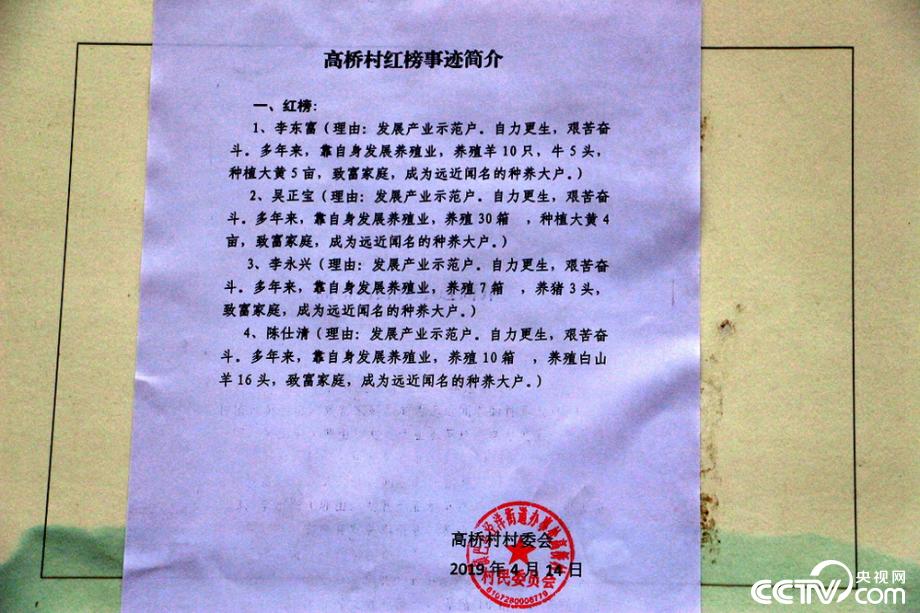 高桥村红榜事迹简介
一、红榜：
1、李东富（理由：发展产业示范户。自力更生，艰苦奋
斗。多年来，靠自身发展养殖业，养殖羊10只，牛5头，
种植大黄5亩，致富家庭，成为远近闻名的种养大户。）
2、吴正宝（理由：发展产业示范户。自力更生，艰苦奋
斗。多年来，靠自身发展养殖业，养殖30箱 ，种植大黄4
亩，致富家庭，成为远近闻名的种养大户。）
3、李永兴（理由：发展产业示范户。自力更生，艰苦奋
斗。多年来，靠自身发展养殖业，养殖7箱 ，养猪3头，
致富家庭，成为远近闻名的种养大户。）
4、陈仕清（理由：发展产业示范户。自力更生，艰苦奋
斗。多年来，靠自身发展养殖业，养殖10箱 ，养殖白山
羊16头，致富家庭，成为远近闻名的种养大户。）
高桥村村委会
2019年4月14日
村民委员会
6107280006778
CCTV.com 央视网